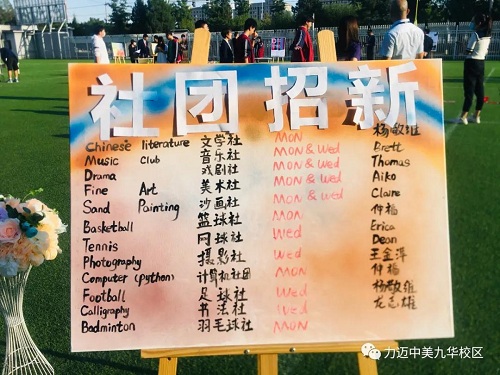 社团招新
Chinese literature 文学社 MON 杨敏维
Music Club 音乐社 MON & Wed Brett
Drama 戏剧社 MON & Wed Thomas
Fine Art 美术社 MON & Wed Aiko
Sand Painting 沙画社 MON & Wed Claire
Basketball 篮球社 MON 仲福
Tennis 网球社 Wed Erica
Photography 摄影社 Wed Dean
Computer (python) 计算机社团 MON 王金萍
Football 足球社 Wed 仲福
Calligraphy 书法社 Wed 杨敏维
Badminton 羽毛球社 MON 龙志雄
力迈中美九华校区